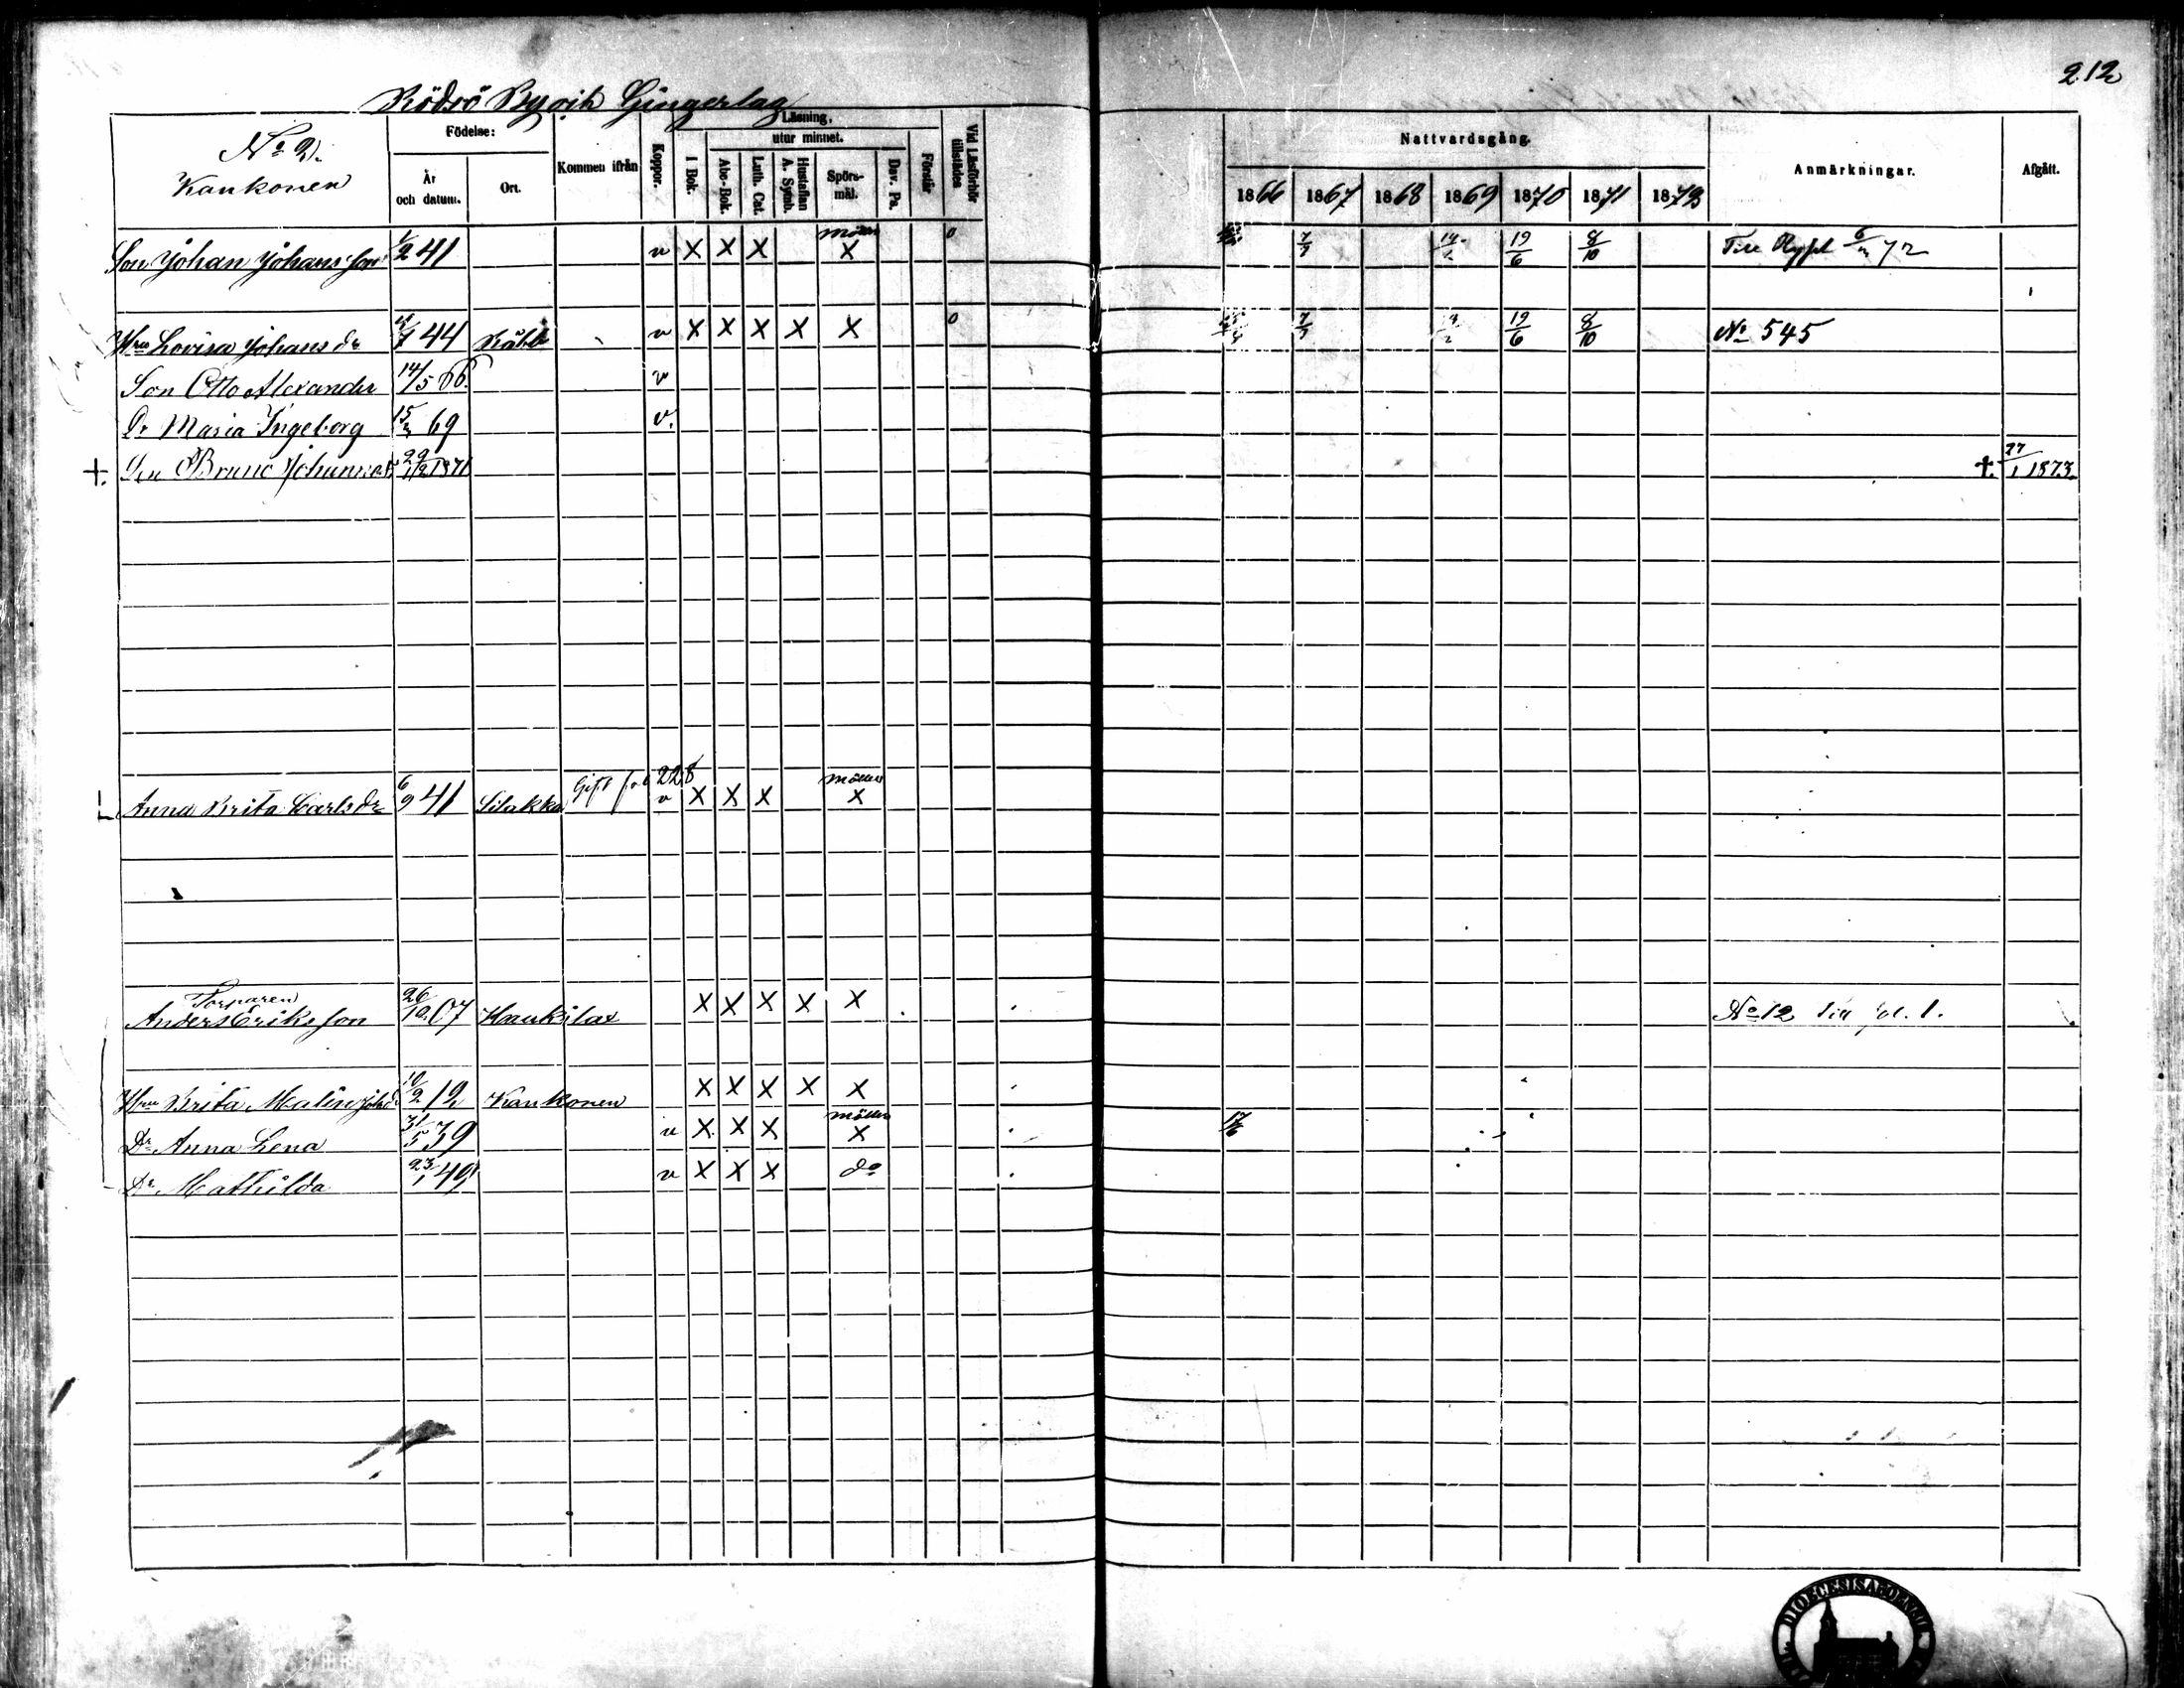 212
Rödsö By och Gingerlag
No 2.
Kankonen
Födelse:
År och datum.
Ort.
Kommen ifrån
Koppor.
Läsning,
utur minnet.
I Bok.
Abc-Bok.
Luth. Cat.
Hustaflan A. Symb.
Spörs-mål.
Dav. Ps.
Förstår
Vid Läsförhör tillstädes
Nattvardsgång.
1866 1867 1868 1869 1870 1871 1872
Anmärkningar.
Afgått.
Son Johan Johansson 1/2 41 v X X X möllers X 0 7/7 19/6 8/10 Till 72
Hru Lovisa Johans dr 44 v X X X X X 0 7/7 19/6 8/10 No 545
Son Otto Alexander 14/5 66. v
Dr Maria Ingeborg 69 v.
+. Son Bruno Johannes 29/12 1871 +. 27/1 1873.
Anna Brita Carls dr 6/9 41 Silakka Gift 228 v X X X möllers X
Torparen
Anders Eriksson 26/10 07 Haukilax X X X X X No 12 till fol. 1.
Hru Brita Malin Johs dr 10/2 12 Kankonen X X X X X
Dr Anna Lena 31/5 39 v X X X möllers X 17/6
Dr Mathilda 23/1 49 v X X X do
DIOECESIS ABOENSIS